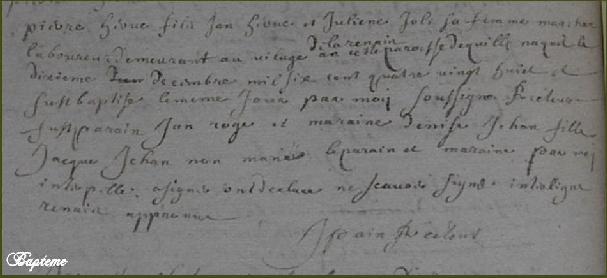 pierre hivue fils Jan hivue et Juliene Joli sa femme
laboureur demeurant au vilage de la renais en cette paroisse de quille naquit le
dixieme decembre mil six cent quatre vingt huict et
fust baptise le meme Jour par moy soussigne Recteur
fust parain Jan roge et maraine denise Jehan fille
Jacque Jehan non mariés le parain et maraine par moy
interpelle a signer ont declare ne scavoir signe interligne
renais approuvé
Recteur
Bapteme